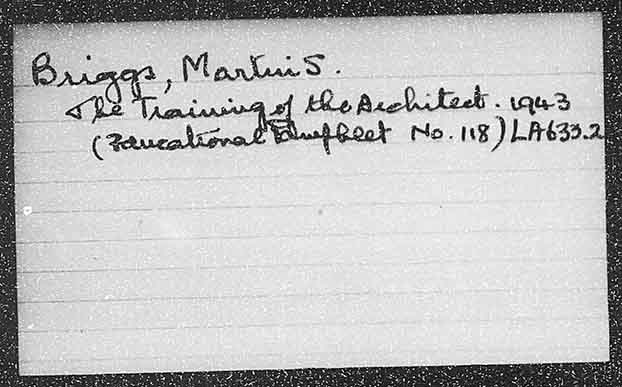 Briggs, Martin S.
The Training of the Architect. 1943
(Educational Pamphlet No. 118) LA633.2